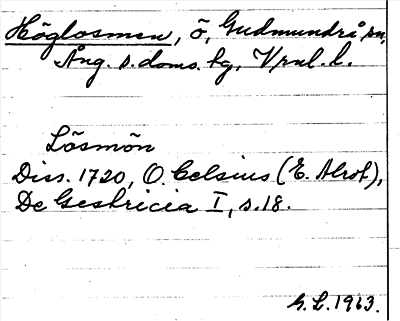 Höglosmen, ö, Gudmundrå sn,
Ång. s. doms. hg, Vrnl. l.
Lösmön
Diss. 1720, O. Celsius (E. Alrot),
De Gestricia I, s. 18.
G. L. 1963.